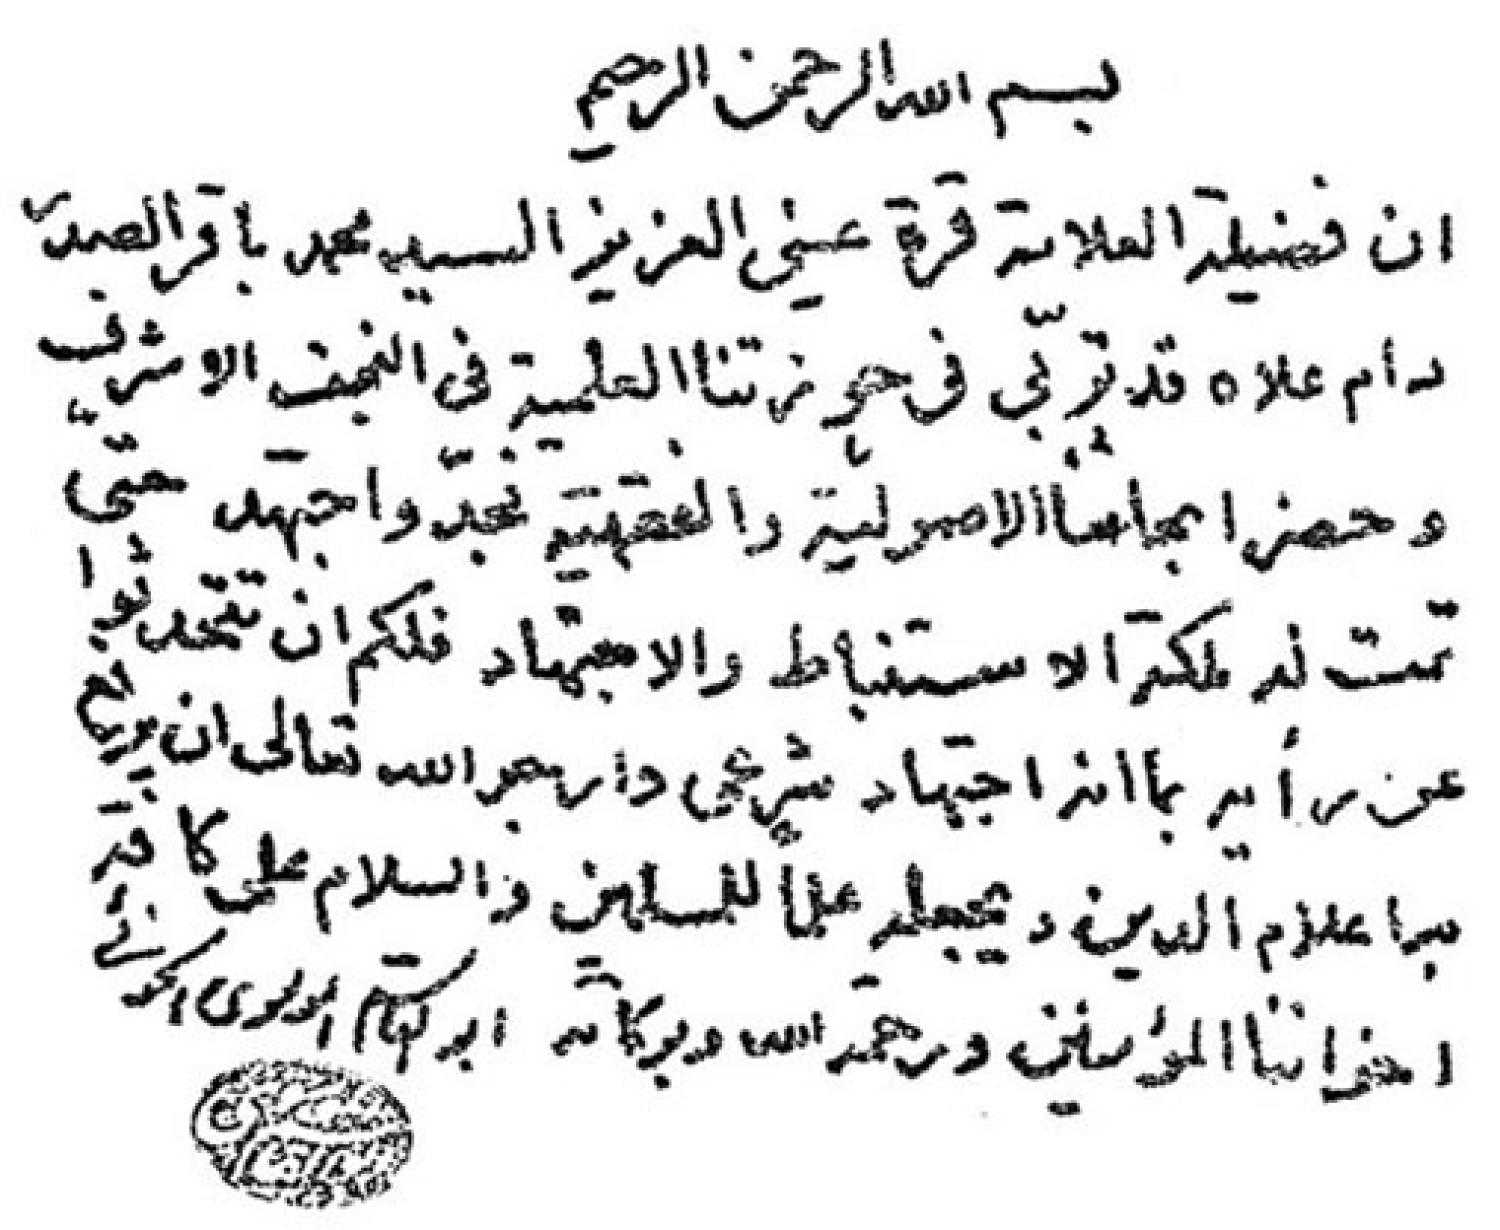 بسم الله الرحمن الرحيم
ان فضيلة العلامة قرة عيني العزيز السيد محمد باقر الصدر
دام علاه قد تربّى في حوزتنا العلمية في النجف الاشرف
و حضر ابحاثنا الاصولية والفقهية فجدّ واجتهد حتى
تمت له ملكة الاستنباط والاجتهاد فلكم ان تتحدثوا
عن رأيه بما انه اجتهاد شرعي وارجو الله تعالى ان يريكم
اعلام الدين و يجعله علما للمسلمين والسلام على كافة
اخواننا المؤمنين ورحمة الله وبركاته ابو القاسم الموسوي الخوئي